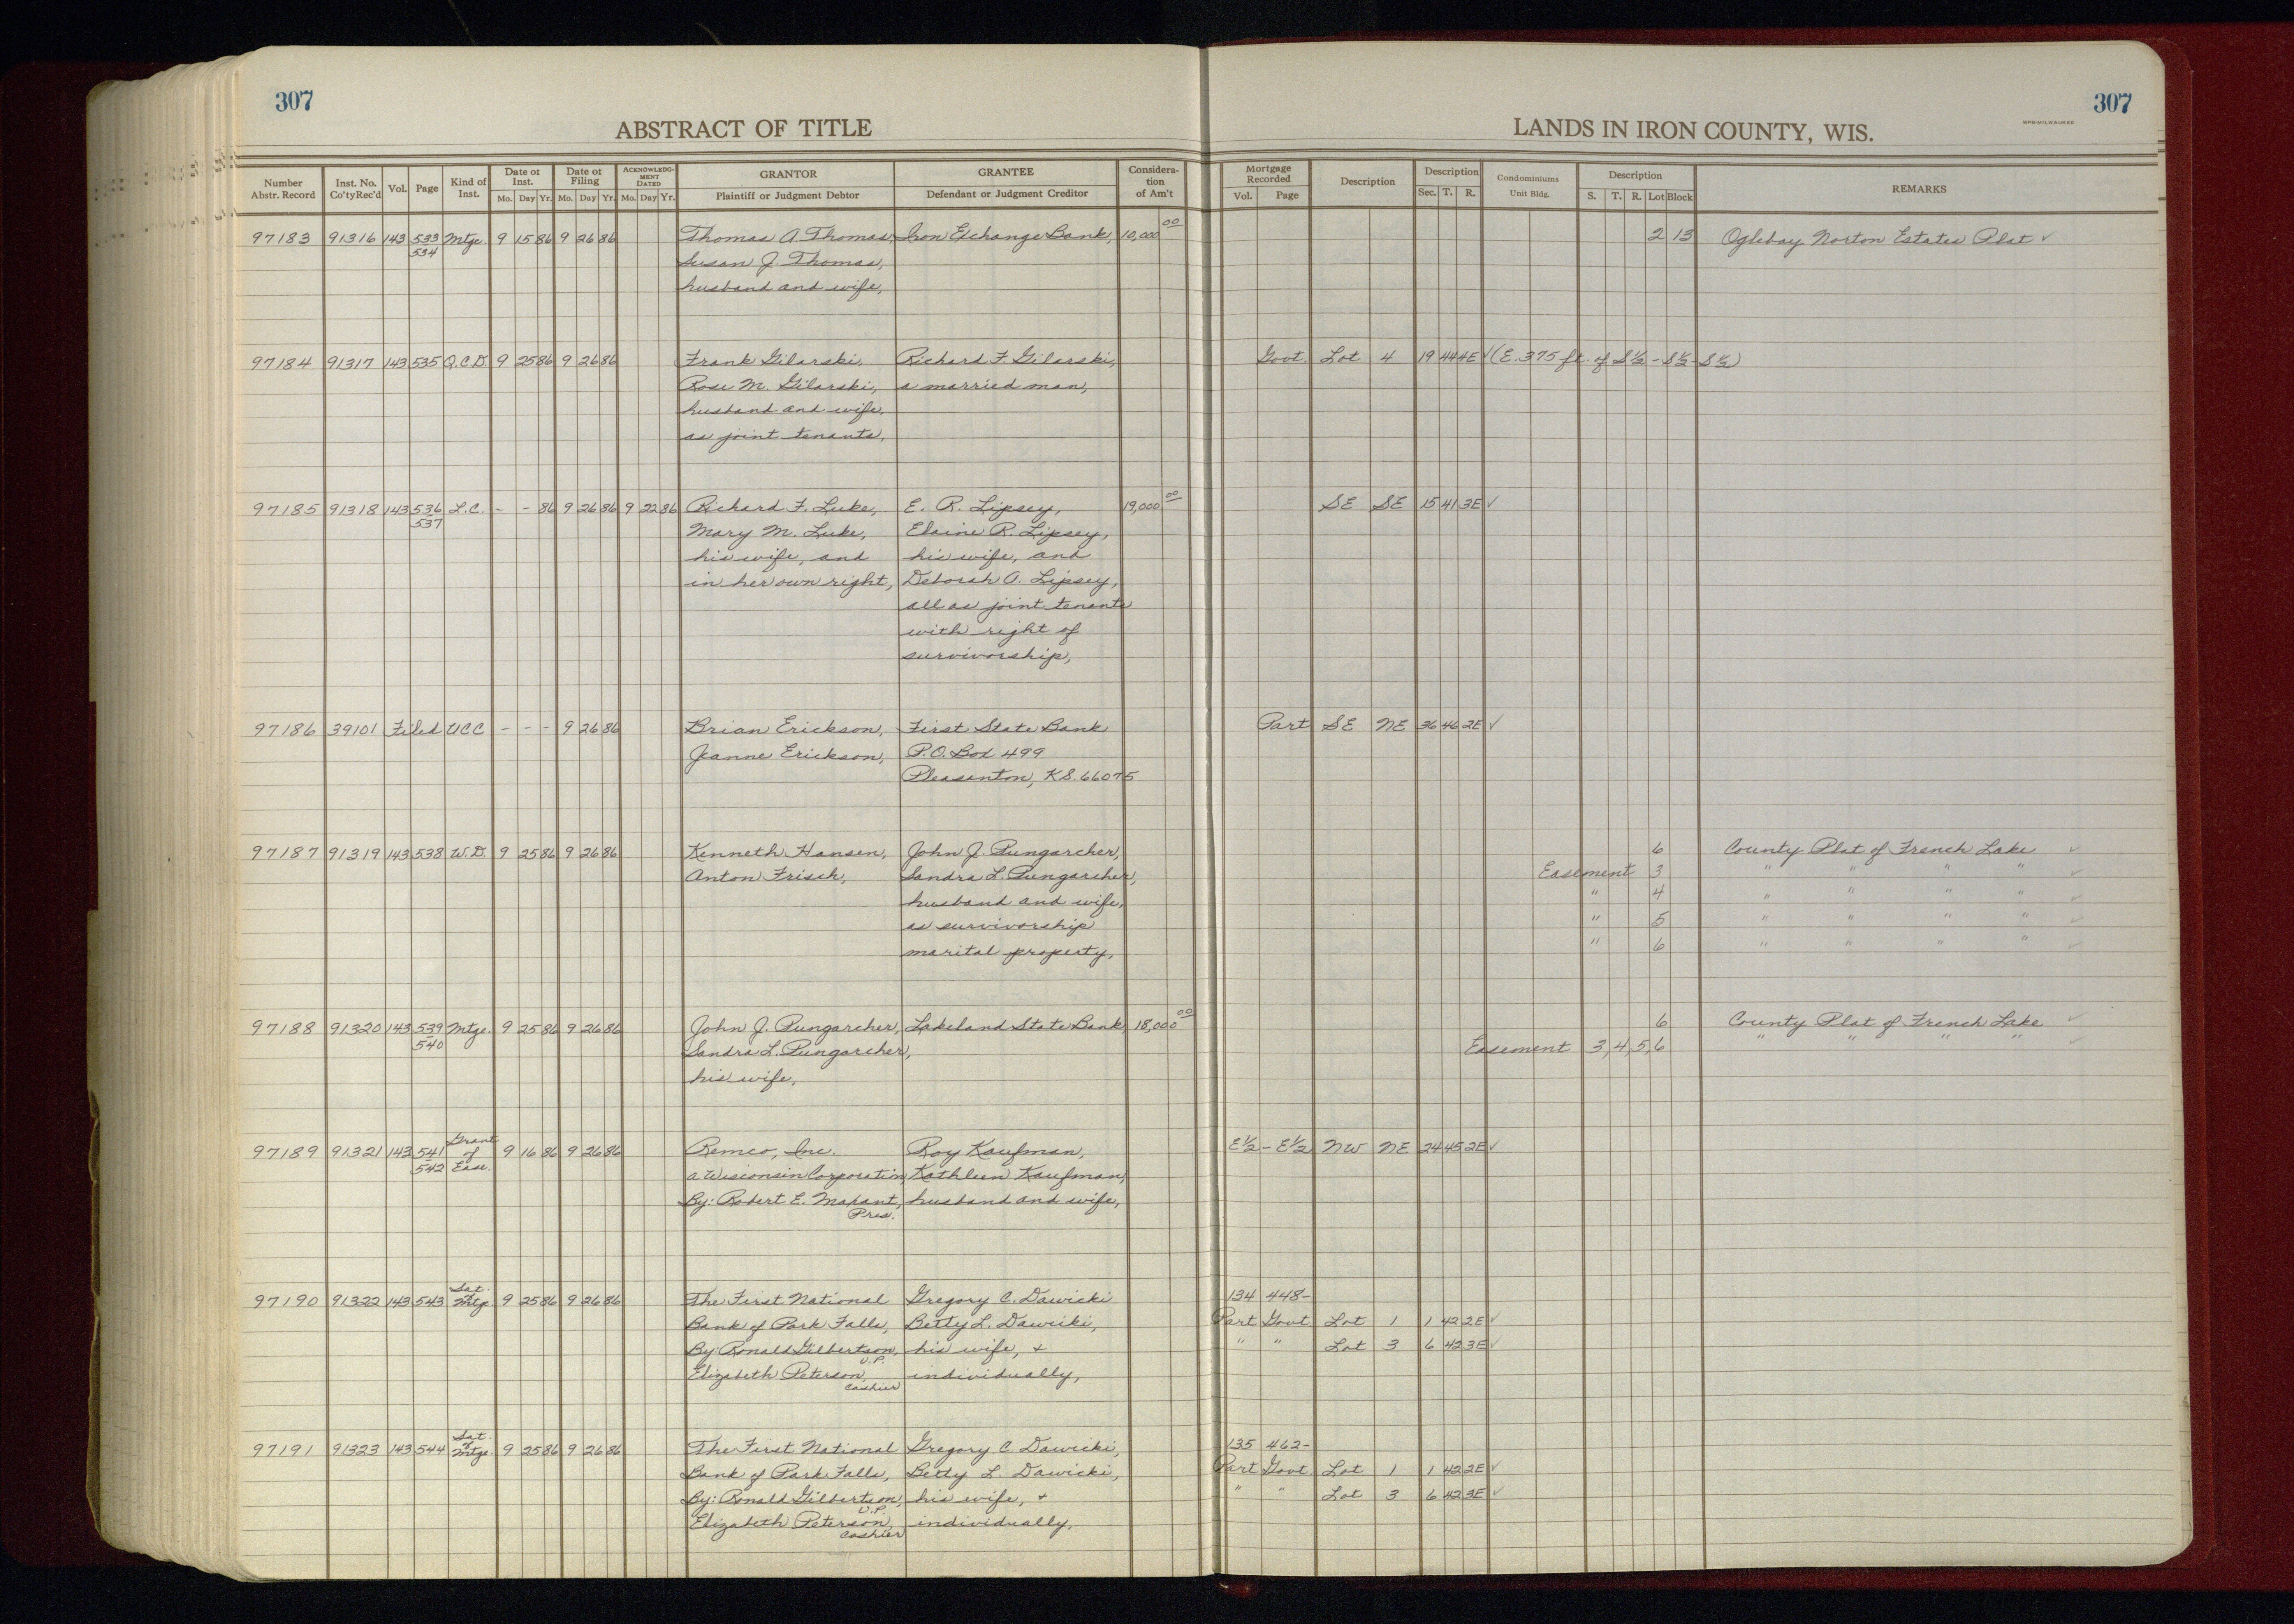 307
307
ABSTRACT OF TITLE
LANDS IN IRON COUNTY, WIS.
MPB-MILWAUKEE
Number Abstr. Record Inst. No. Co'ty Rec'd Vol. Page Kind of Inst. Date of Inst. Mo. Day Yr. Date of Filing Mo. Day Yr. ACKNOWLEDG-MENT DATED Mo. Day Yr. GRANTOR Plaintiff or Judgment Debtor GRANTEE Defendant or Judgment Creditor Considera-tion of Am't Mortgage Recorded Vol. Page Description Description Sec. T. R. Condominiums Unit Bldg. Description S. T. R. Lot Block REMARKS
97183 91316 143 533 Mtge. 9 15 86 9 26 86 Thomas A. Thomas, Iron Exchange Bank, 10,000 00 2 13 Oglebay Norton Estates Plat ✓
534 Susan J. Thomas,
husband and wife,
97184 91317 143 535 Q.C.D. 9 25 86 9 26 86 Frank Gilarski, Richard F. Gilarski, Govt. Lot 4 19 44 4E ✓ (E. 375 ft. of S½ - S½ - S½)
Rose M. Gilarski, a married man,
husband and wife,
as joint tenants,
97185 91318 143 536 L.C. - - 86 9 26 86 9 22 86 Richard F. Luke, E. R. Lipsey, 19,000 00 SE SE 15 41 3E ✓
537 Mary M. Luke, Elaine R. Lipsey,
his wife, and his wife, and
in her own right, Deborah A. Lipsey,
all as joint tenants
with right of
survivorship,
97186 39101 Filed UCC - - - 9 26 86 Brian Erickson, First State Bank Part SE NE 36 46 2E ✓
Jeanne Erickson, P.O. Box 499
Pleasanton, KS. 66075
97187 91319 143 538 W.D. 9 25 86 9 26 86 Kenneth Hansen, John J. Pungarcher, 6 County Plat of French Lake ✓
Anton Frisch, Sandra L. Pungarcher, Easement 3 " " " " ✓
husband and wife, " 4 " " " " ✓
as survivorship " 5 " " " " ✓
marital property, " 6 " " " " ✓
97188 91320 143 539 Mtge. 9 25 86 9 26 86 John J. Pungarcher, Lakeland State Bank, 18,000 00 6 County Plat of French Lake ✓
540 Sandra L. Pungarcher, Easement 3, 4, 5, 6 " " " " ✓
his wife,
97189 91321 143 541 Grant of Ease. 9 16 86 9 26 86 Remco, Inc. Roy Kaufman, E½ - E½ NW NE 24 45 2E ✓
542 a Wisconsin Corporation, Kathleen Kaufman,
By: Robert E. Makant, husband and wife,
Pres.
97190 91322 143 543 Sat. of Mtge 9 25 86 9 26 86 The First National Gregory C. Dawicki 134 448-
Bank of Park Falls, Betty L. Dawicki, Part Govt. Lot 1 1 42 2E ✓
By: Ronald Gilbertson, his wife, + " " Lot 3 6 42 3E ✓
V.P.
Elizabeth Peterson, individually,
cashier
97191 91323 143 544 Sat. of Mtge. 9 25 86 9 26 86 The First National Gregory C. Dawicki, 135 462-
Bank of Park Falls, Betty L. Dawicki, Part Govt. Lot 1 1 42 2E ✓
By: Ronald Gilbertson, his wife, + " " Lot 3 6 42 3E ✓
V.P.
Elizabeth Peterson, individually,
cashier